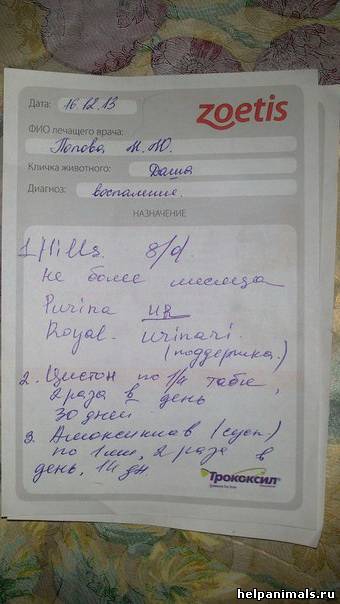 Дата: 16.12.13
zoetis
ФИО лечащего врача:
Попова М.Ю.
Кличка животного: Даша
Диагноз: воспаление.
НАЗНАЧЕНИЕ
1 Hills. s/d.
не более месяца
Purina UR
Royal. Urinari.
(поддержка.)
2. Цистон по 1/4 табл,
2 раза в день
30 дней
3. Амоксиклав (сусп)
по 1 мл, 2 раза в
день, 14 дн.
Трококсил
helpanimals.ru